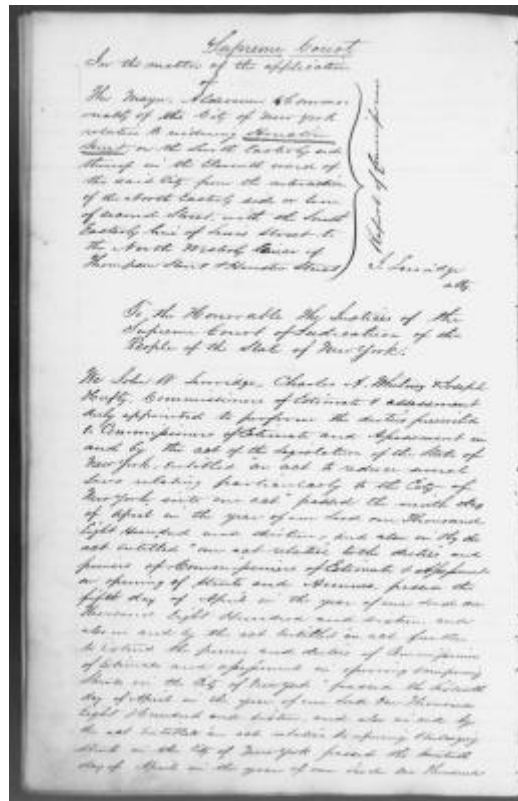 Supreme Court
In the matter of the application
of
The Mayor, Aldermen & Common
alty of the City of New York
relative to widening Houston
Street on the South Easterly side
thereof in the Eleventh ward of
the said City from the intersection
of the North Easterly side or line
of Second Street, with the South
Easterly line of Lewis Street to
the North Westerly
Report of
atty
To the Honorable the Justices of the
Supreme Court of Judicature of the
People of the State of New York.
We John W. Charles A. Whitney & Joseph
Commissioners of Estimate & assessment
duly appointed to perform the duties prescribed
to Commissioners of Estimate and Assessment in
and by the act of the legislature of the State of
New York, entitled an act to reduce several
laws relating particularly to the City of
New York into one act" passed the ninth day
of April in the year of our Lord one Thousand
Eight Hundred and thirteen, and also in & by the
act entitled "an act relative to the duties and
powers of Commissioners of Estimate & Assessment
on opening of streets and Avenues, passed the
fifth day of April in the year of our Lord one
Thousand Eight Hundred and and
also in and by the act entitled an act further
to extend the powers and duties of Commissioners
of Estimate and assessment on opening
streets in the City of New York" passed the
day of April in the year of our Lord One Thousand
Eight Hundred and and also in and by
the act entitled an act relative to opening & enlarging
streets in the City of New York passed the
day of April in the year of our Lord One Thousand